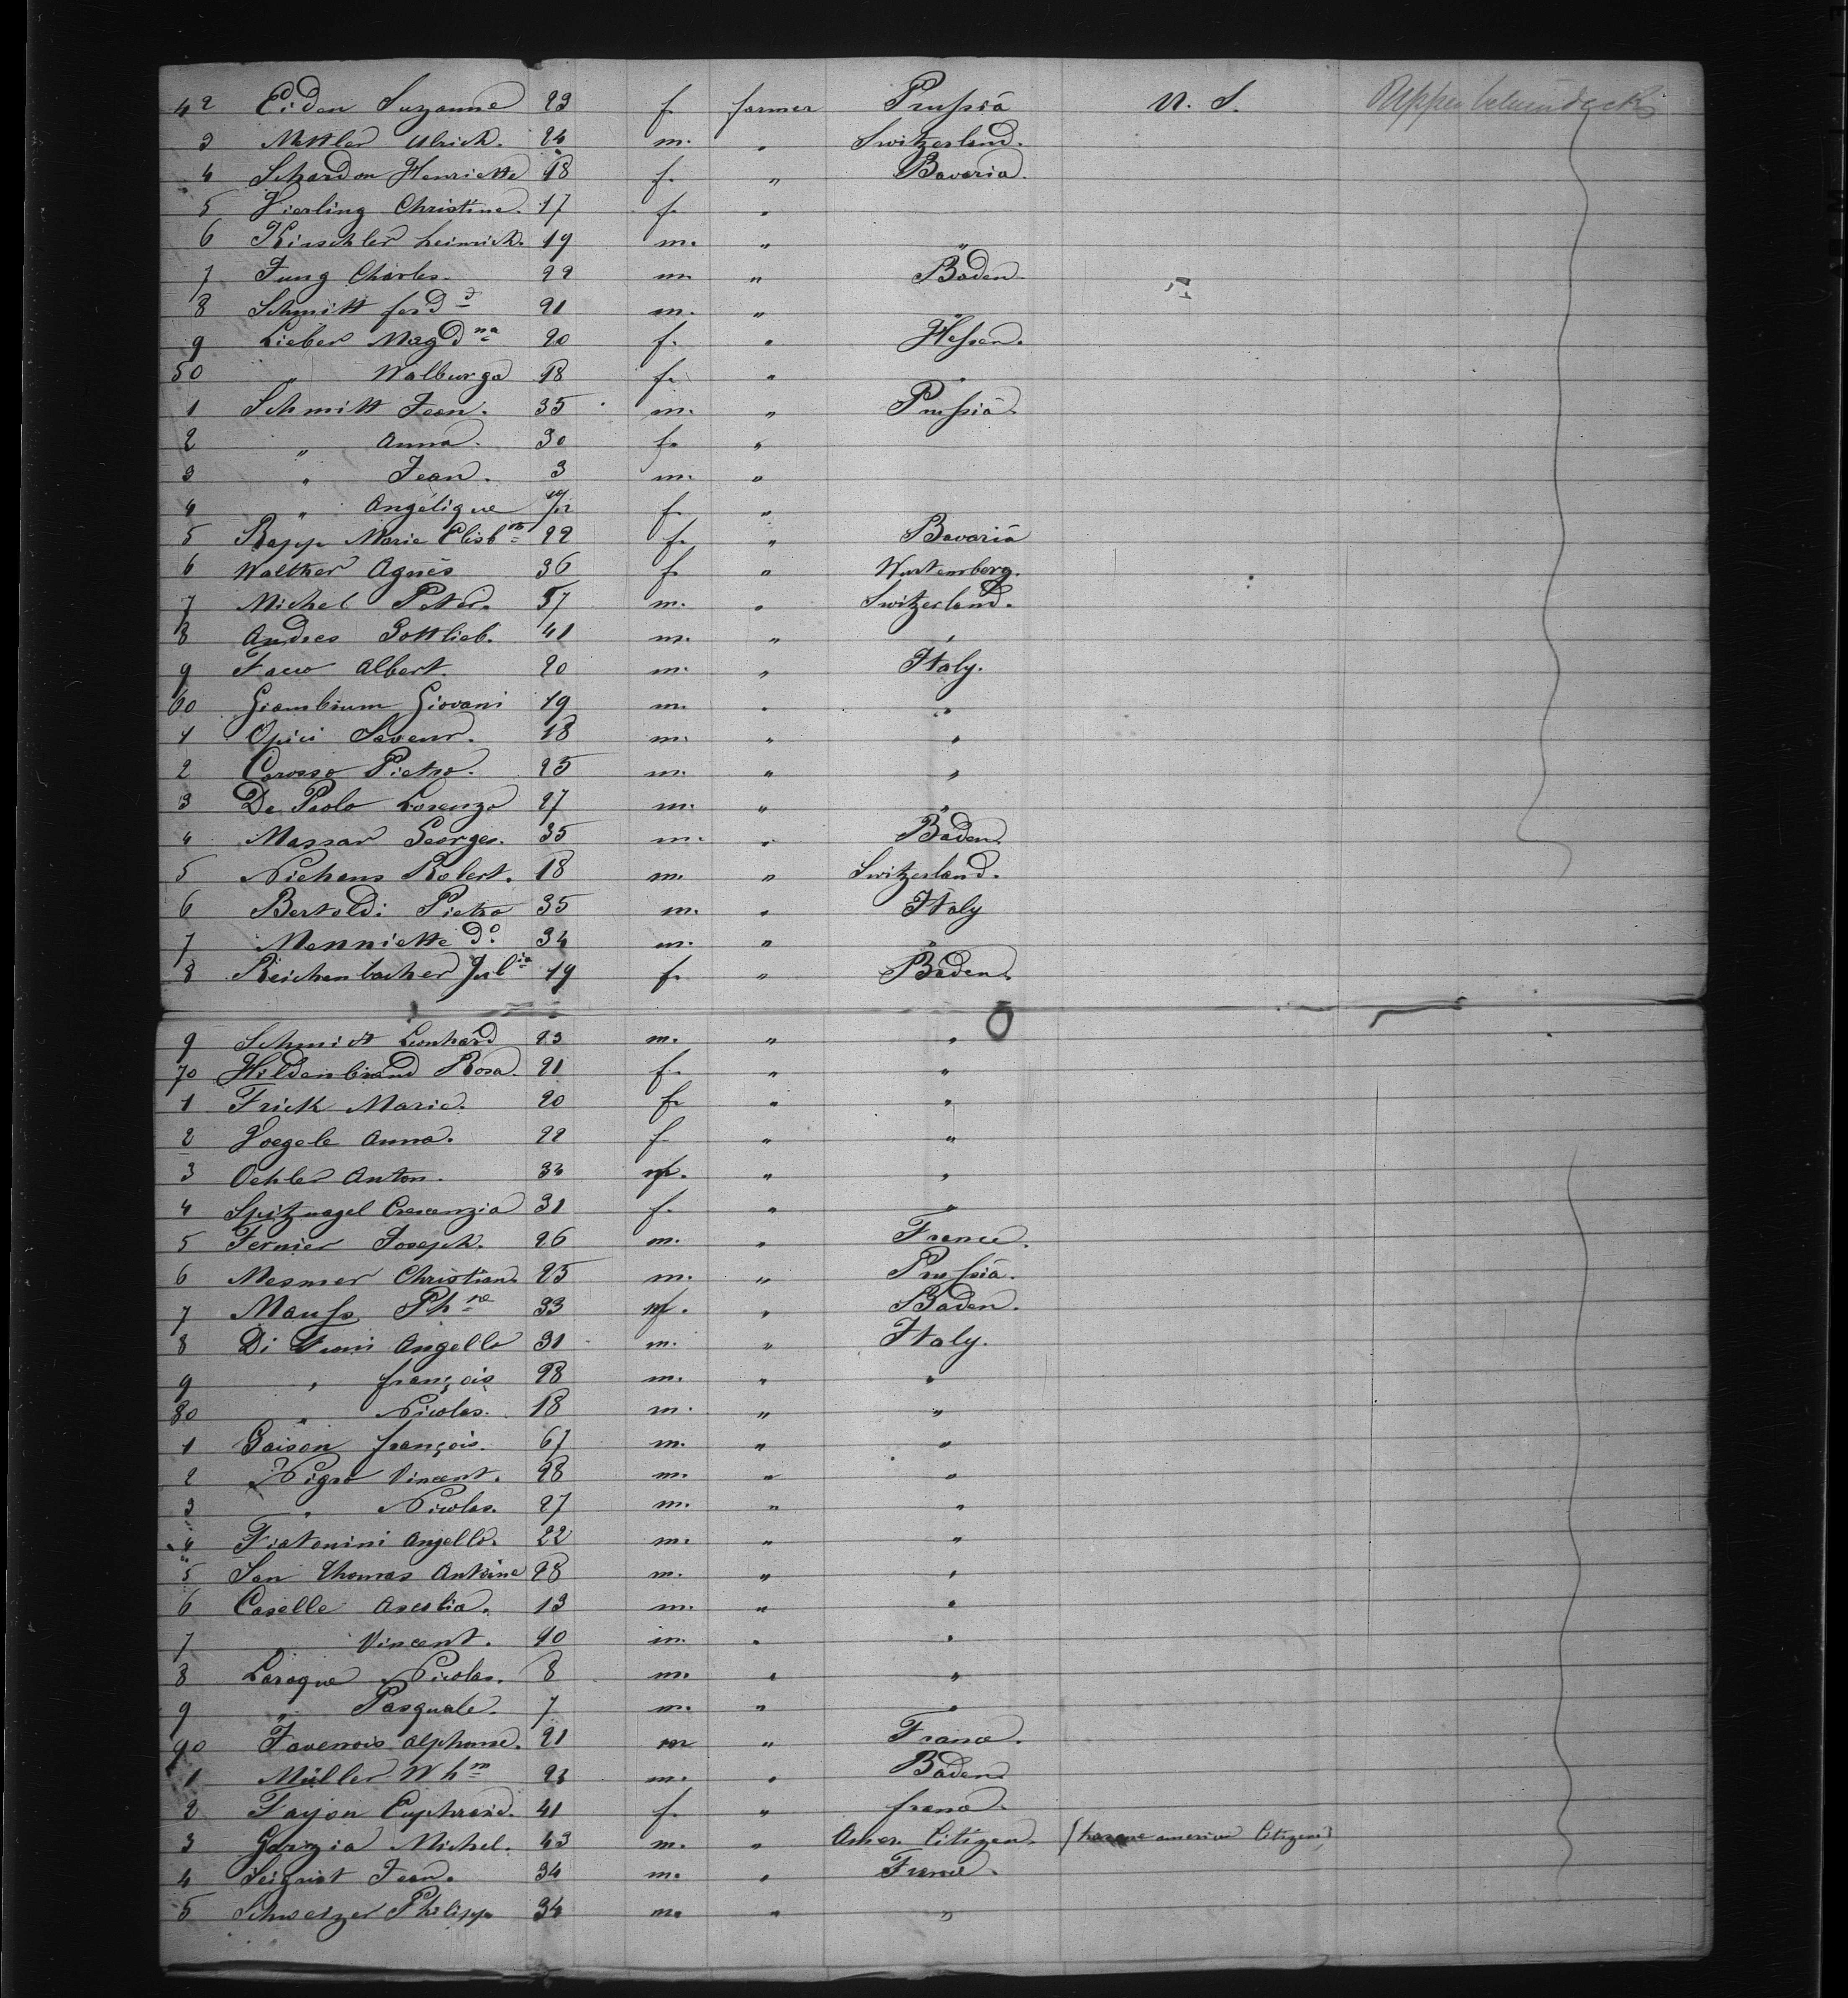 42 Eiden Suzanne 23 f. farmer Prussia U. S. Upper between decks
3 Mettler Ulrich. 24 m. " Switzerland.
4 Schardon Henriette 18 f. " Bavaria.
5 Vierling Christine. 17 f. "
6 Kirschler heinrich. 19 m. " "
7 Jung Charles. 22 m. " Baden
8 Schmitt ferd d 21 m. " "
9 Lieber Magd na 20 f. " Hessen.
50 " Walburga 18 f. " "
1 Schmitt Jean. 35 m. " Prussia.
2 " Anna. 30 f. "
3 " Jean. 3 m. "
4 " Angélique 10/12 f. "
5 Rapp Marie Elisb th 22 f. " Bavaria
6 Walther Agnès 36 f. " Wurtemberg.
7 Michel Peter. 57 m. " Switzerland.
8 Andres Gottlieb. 41 m. " "
9 Albert. 20 m. " Italy.
60 Giovani 19 m. " "
1 Opici Saveur. 18 m. " "
2 Carosso Pietro. 25 m. " "
3 De Paolo Lorenzo 27 m. " "
4 Massar Georges. 35 m. " Baden.
5 Niehans Robert. 18 m. " Switzerland.
6 Bertoldi Pietro 35 m. " Italy
7 Menniette do. 34 m. " "
8 Reichenbacher 19 f. " Baden.
9 Schmidt Leonhard 23 m. " "
70 Hildenbrand Rosa. 21 f. " "
1 Frick Marie. 20 f. " "
2 Voegele Anna. 22 f. " "
3 Oehler Anton. 34 m. " "
4 Spitznagel Crescenzia 31 f. " "
5 Fernier Joseph. 26 m. " France.
6 Mesmer Christian. 25 m. " Prussia.
7 Mauss Ph ne 33 f. " Baden.
8 Di Angello 31 m. " Italy.
9 " françois 28 m. " "
80 " Nicolas. 18 m. " "
1 Gaison françois. 67 m. " "
2 Nigro Vincent. 28 m. " "
3 " Nicolas. 27 m. " "
4 Fiatonini Angello. 22 m. " "
5 San Thomas Antoine 28 m. " "
6 Caselle 13 m. " "
7 Vincent. 10 m. " "
8 Laraque Nicolas. 8 m. " "
9 " Pasquale. 7 m. " "
90 Favenois Alphonse. 21 m " France.
1 Müller Wh m 23 m. " Baden
2 Fayon Euphrasie. 41 f. " france.
3 Garzia Michel. 43 m. " Amer. Citizen. american Citizen)
4 Seigrist Jean. 34 m. " France.
5 Schweizer Philipp 34 m. " "